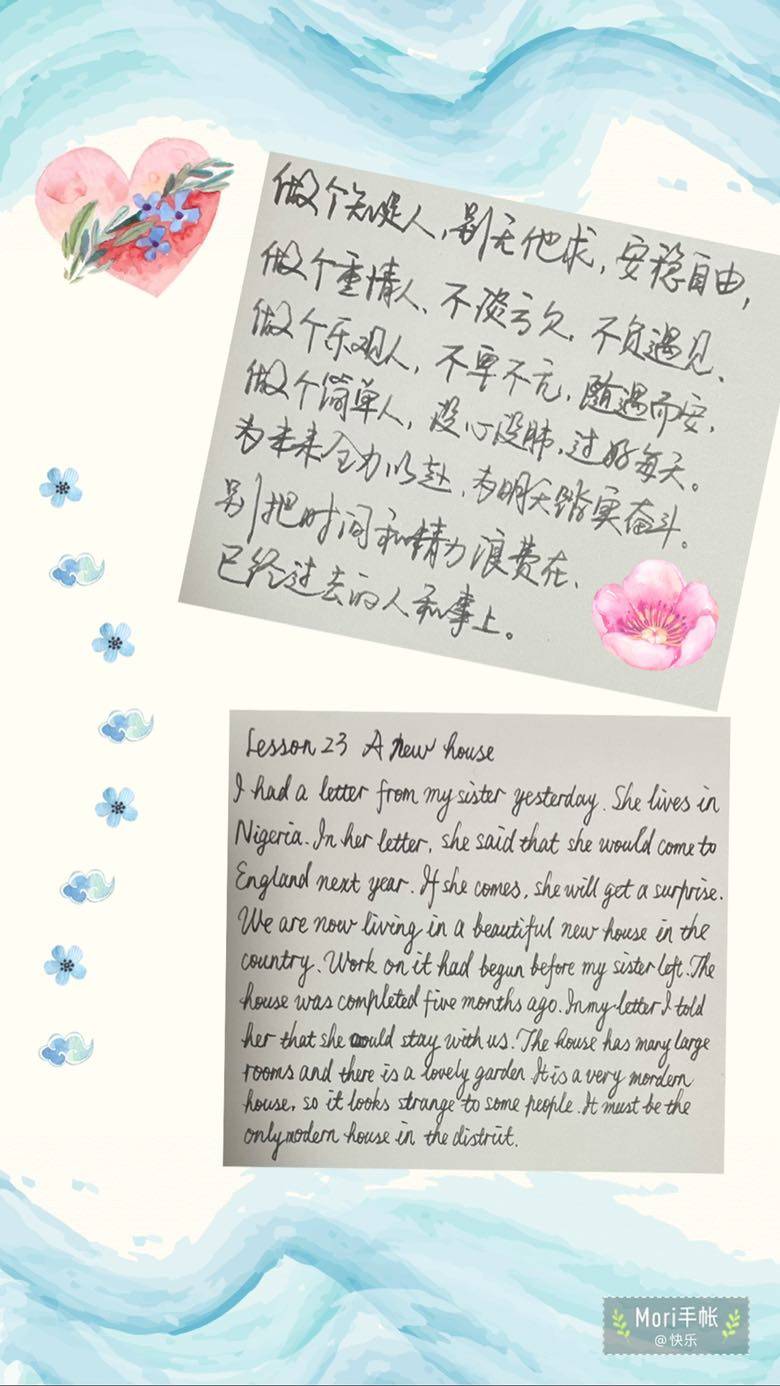 做个知足人,别无他求,安稳自由,
做个重情人、不谈亏欠、不负遇见、
做个乐观人,不卑不亢,随遇而安,
做个简单人,没心没肺,过好每天。
为未来全力以赴、为明天踏实奋斗。
别把时间和精力浪费在、
已经过去的人和事上。
Lesson 23 A new house
I had a letter from my sister yesterday. She lives in
Nigeria. In her letter, she said that she would come to
England next year. If she comes, she will get a surprise.
We are now living in a beautiful new house in the
country. Work on it had begun before my sister left. The
house was completed five months ago. In my letter I told
her that she could stay with us. The house has many large
rooms and there is a lovely garden. It is a very mordern
house, so it looks strange to some people. It must be the
only modern house in the district.
Mori手帐
@快乐